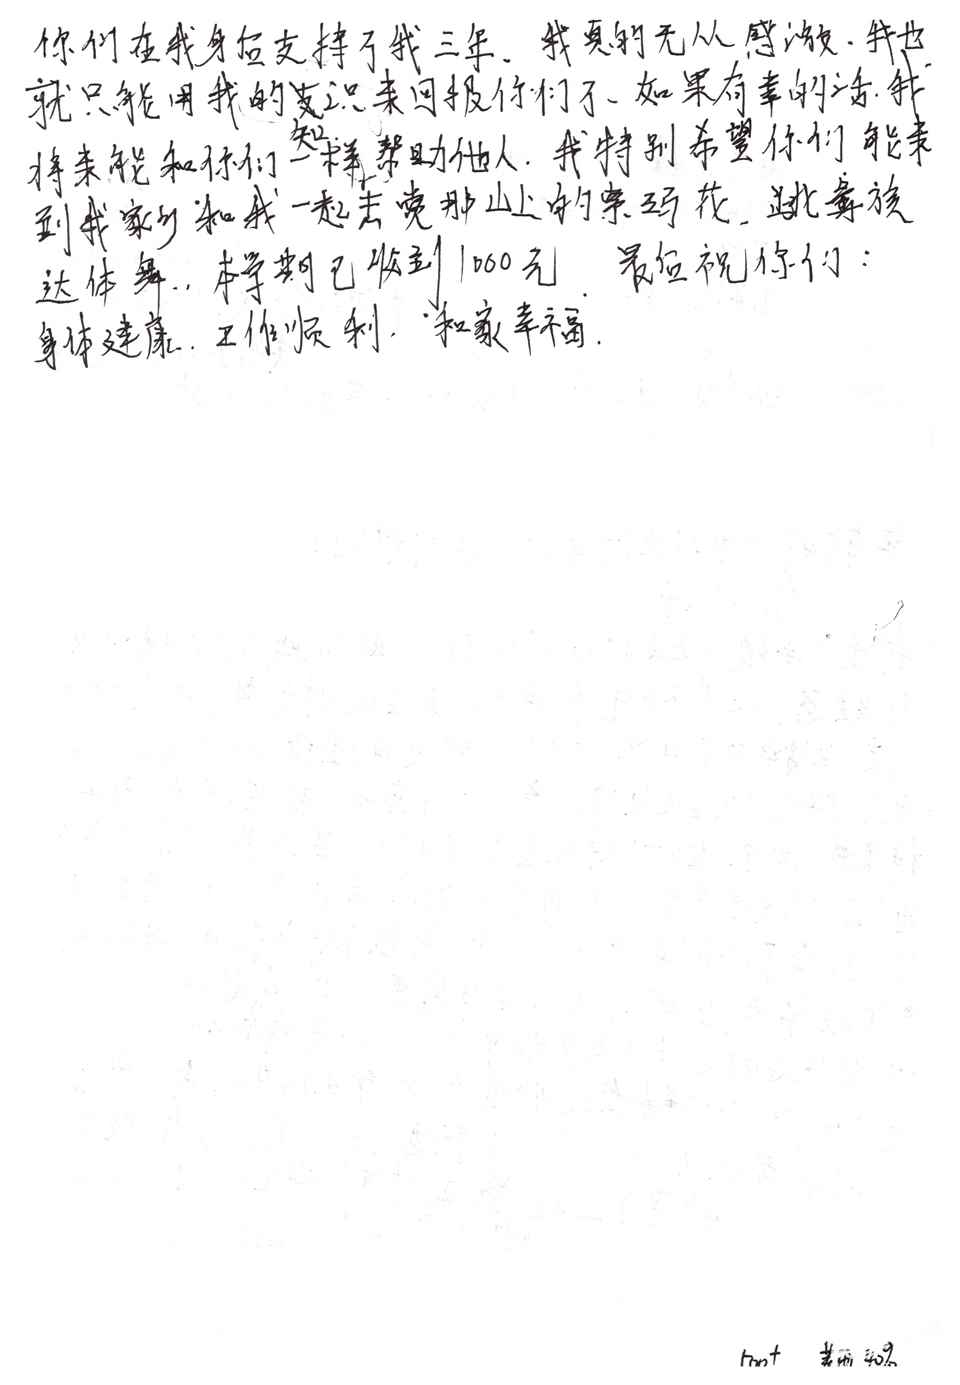 你们在我身后支持了我三年、我真的无从感激.我也
就只能用我的知识来回报你们了、如果有幸的话.我
将来能和你们一样帮助他人.我特别希望你们能来
到我家乡和我一起去赏那山上的索玛花、跳彝族
达体舞..本学期已收到1000元. 最后祝你们:
身体建康.工作顺利.和家幸福.